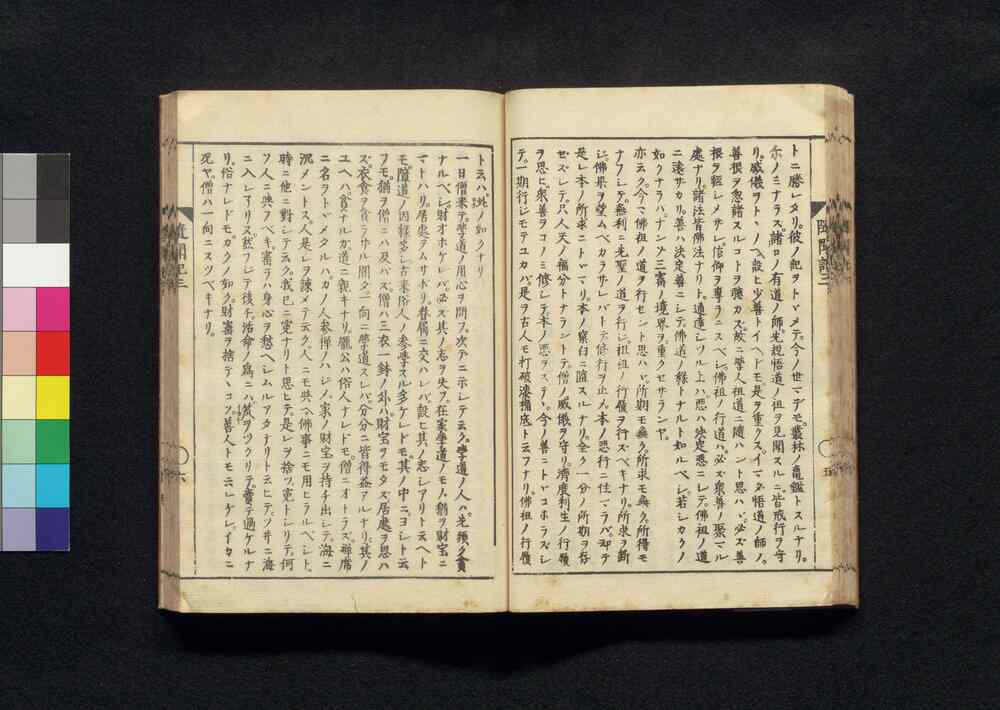 トニ勝レタリ。彼ノ記ヲトヾメテ。今ノ世マデモ。叢林ノ亀鑑トスルナリ。
尓ノミナラス。諸ロノ有道ノ師。先規悟道ノ祖ヲ見聞スルニ。皆戒行ヲ守
リ。威儀ヲトヽノヘ。設ヒ少善トイヘドモ是ヲ重クス。イマダ悟道ノ師ノ。
善根ヲ忽諸スルコトヲ聴カズ。故ニ学人祖道ニ随ハント思ハヾ。必ズ善
根ヲ軽シメサレ。信仰ヲ専ラニスベシ。佛祖ノ行道ハ。必ズ衆善ノ聚マル
處ナリ。諸法皆佛法ナリト。通達シツル上ハ。悪ハ決定悪ニシテ。佛祖ノ道
ニ遠サカリ。善ハ決定善ニシテ。佛道ノ縁トナルト知ルベシ。若シカクノ
如クナラハ。ナンゾ三寶ノ境界ヲ重クセサランヤ。
亦云ク。今マ佛祖ノ道ヲ行ゼント思ハヾ。所期モ無ク。所求モ無ク。所得モ
ナフシテ。無利ニ先聖ノ道ヲ行シ。祖祖ノ行履ヲ行ズベキナリ。所求ヲ断
シ。佛果ヲ望ムベカラサレバトテ。修行ヲ止メ。本ノ悪行ニ住マラバ。却テ
是レ本ノ所求ニトヾマリ。本ノ窠臼ニ堕スルナリ。全ク一分ノ所期ヲ存
ゼズシテ。只人天ノ福分トナラントテ。僧ノ威儀ヲ守リ。済度利生ノ行履
ヲ思ヒ。衆善ヲコノミ修シテ。本ノ悪ヲステヽ。今ノ善ニトヾコホラズシ
テ。一期行シモテユカバ。是ヲ古人モ打破漆桶底ト云フナリ。佛祖ノ行履
随聞記三
五
ト云ハ。此ノ如クナリ
一日僧来テ。学道ノ用心ヲ問フ。次テニ示シテ云ク。学道ノ人ハ。先須ク貧
ナルベシ。財オホケレバ。必ズ其ノ志ヲ失フ。在家学道ノモノ。猶ヲ財宝ニ
マトハリ。居處ヲムサボリ。眷属ニ交ハレバ。設ヒ其ノ志シアリト云ヘト
モ。障道ノ因縁多シ。古来俗人ノ参学スル多ケレドモ。其ノ中ニ。ヨシト云
フモ。猶ヲ僧ニハ及バス。僧ハ三衣一鉢ノ外ハ。財宝ヲモタズ。居處ヲ思ハ
ズ。衣食ヲ貪ラサル間ダ。一向ニ学道スレバ。分分ニ皆得益アルナリ。其ノ
ユヘハ。貧ナルカ道ニ親キナリ。龐公ハ俗人ナレドモ。僧ニオトラズ。禅席
ニ名ヲトヾメタルハ。カノ人参禅ノハジメ。家ノ財宝ヲ持チ出シテ。海ニ
沉メントス。人是レヲ諫メテ云ク。人ニモ與ヘ。佛事ニモ用ヒラルベシト。
時ニ他ニ對シテ云ク。我已ニ寃ナリト思ヒテ。是レヲ捨ツ。寃トシリテ。何
ソ人ニ與フベキ。寳ラハ身心ヲ愁ヘシムルアタナリト云ヒテ。ツ井ニ海
ニ入レ了リヌ。然フシテ後チ。活命ノ為ニハ。笊ヲツクリテ。賣テ過ケルナ
リ。俗ナレドモ。カクノ如ク。財寳ヲ捨テヽコソ。善人トモ云レケレ。イカニ
况ヤ。僧ハ一向ニスツベキナリ。
随聞記三
六